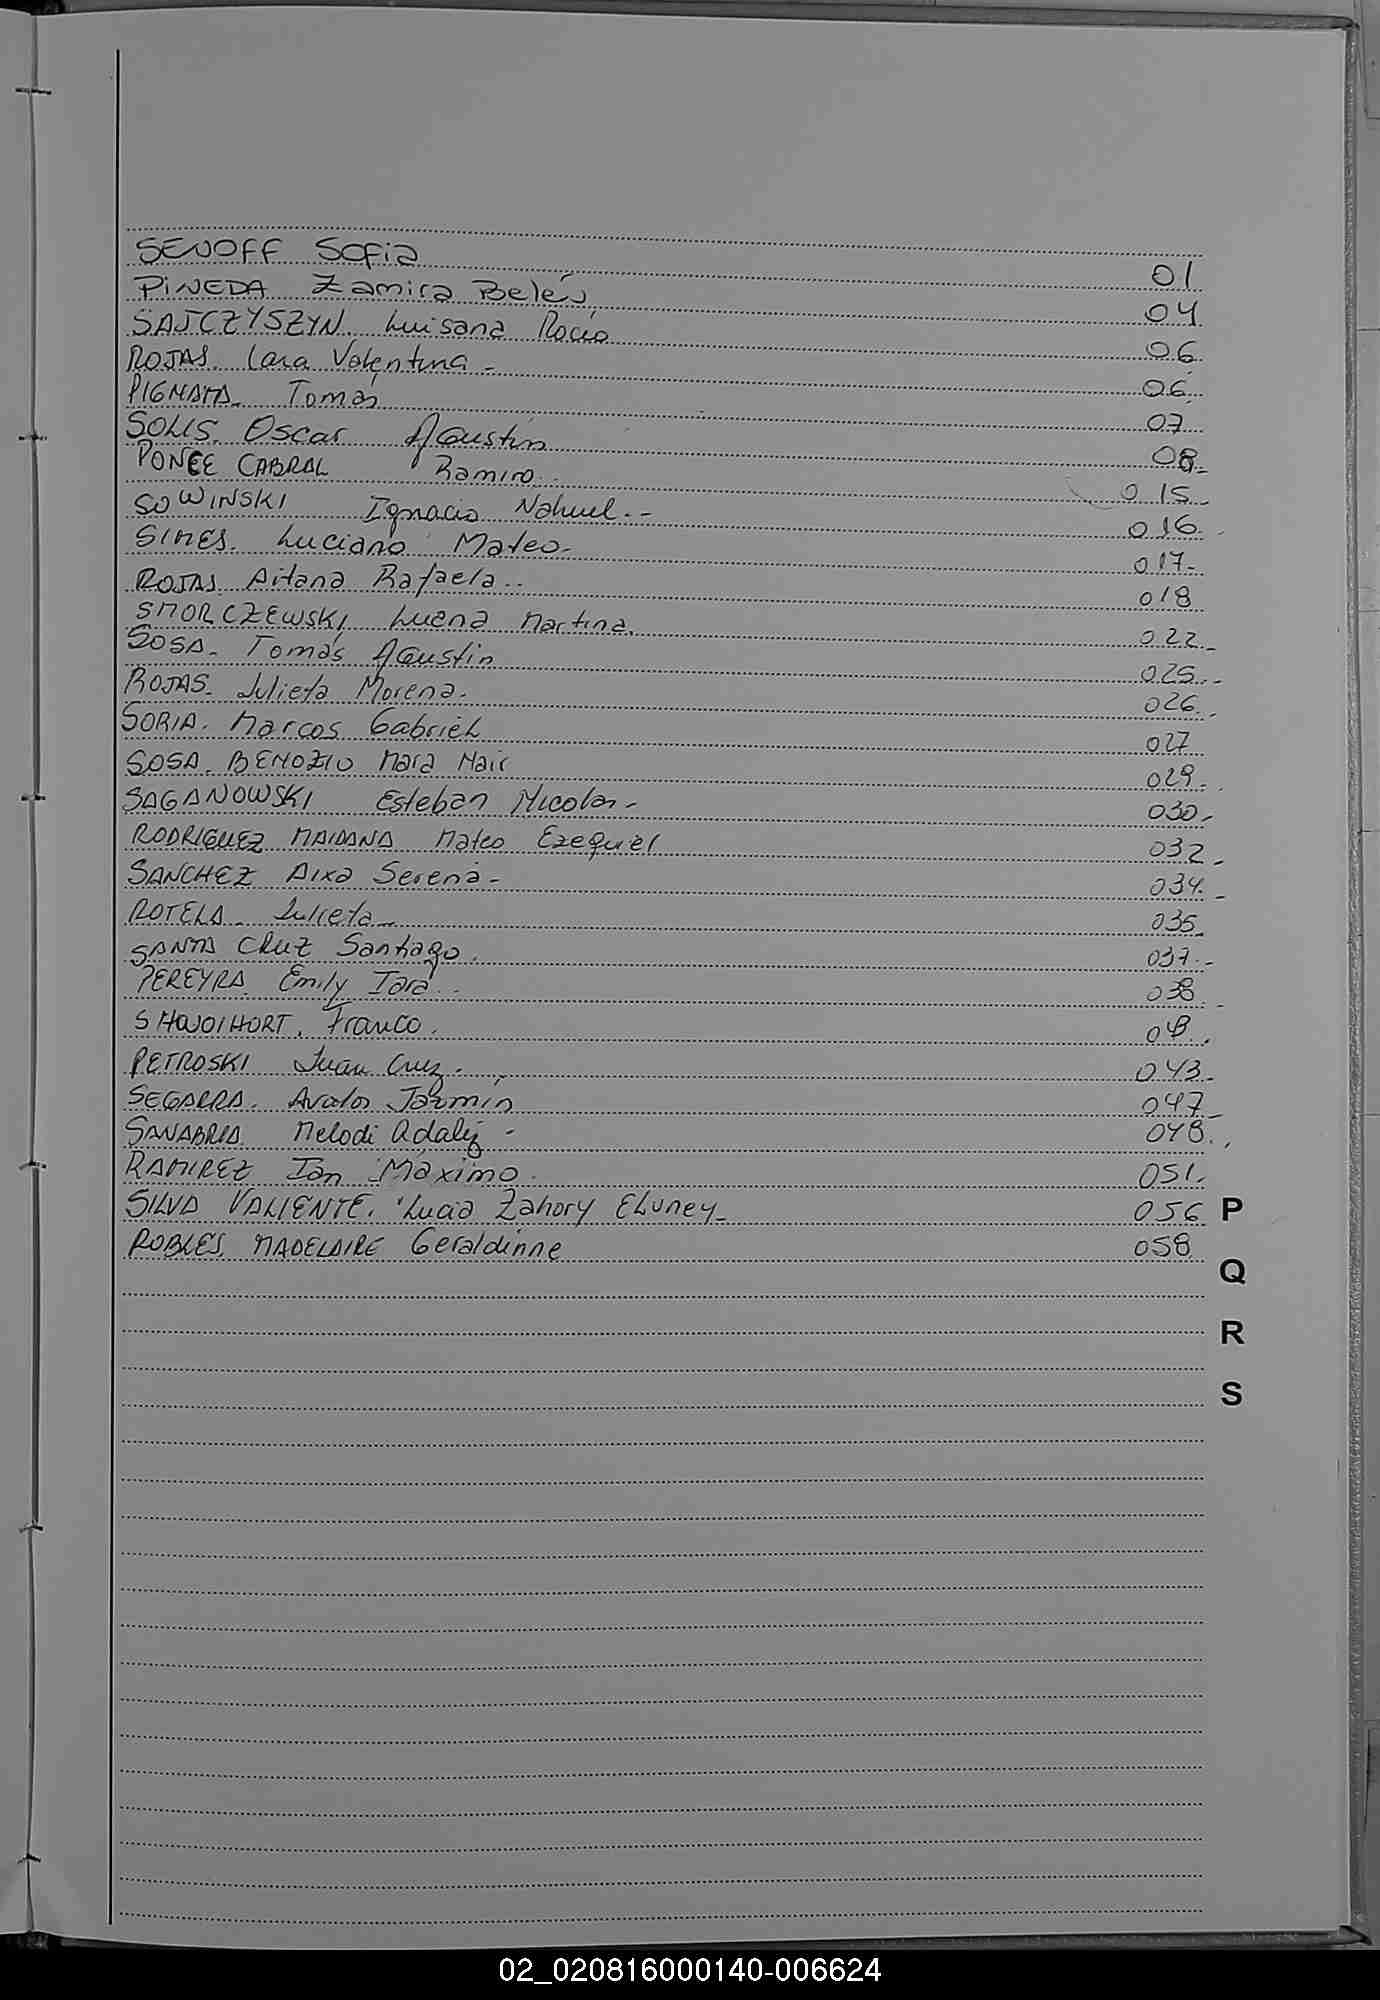 SENOFF Sofia 01
PINEDA Zamira Belén 04
SAJCZYSZYN Luisana Rocío 06
ROJAS. Lara Valentina - 06
PIGNATA. Tomás 07
SOLIS. Oscar Agustín 08
PONCE CABRAL Ramiro. 015
SOWINSKI Ignacio Nahuel.- 016
SIMES. Luciano Mateo- 017-
ROJAS Aitana Rafaela.. 018
SMORCZEWSKI Luana Martina. 022
SOSA. Tomás Agustín 025
ROJAS. Julieta Morena. 026
SORIA. Marcos Gabriel 027
SOSA. BENOZIO Mara Nair 029
SAGANOWSKI Esteban Nicolas- 030
RODRIGUEZ MAIDANA Mateo Ezequiel 032
SANCHEZ Aixa Serena- 034
ROTELA Julieta 035
SANTA CRUZ Santiago. 037
PEREYRA. Emily Iara.. 038
Franco.
PETROSKI Juan Cruz. 043
SEGARRA. Avalos Jazmín 047
SANABRIA Melodi 048
RAMIREZ Ian Máximo. 051.
SILVA VALIENTE. Lucia Zahory Eluney 056 P
ROBLES. MADELAIRE Geraldinne 058
Q
R
S
02_020816000140-006624